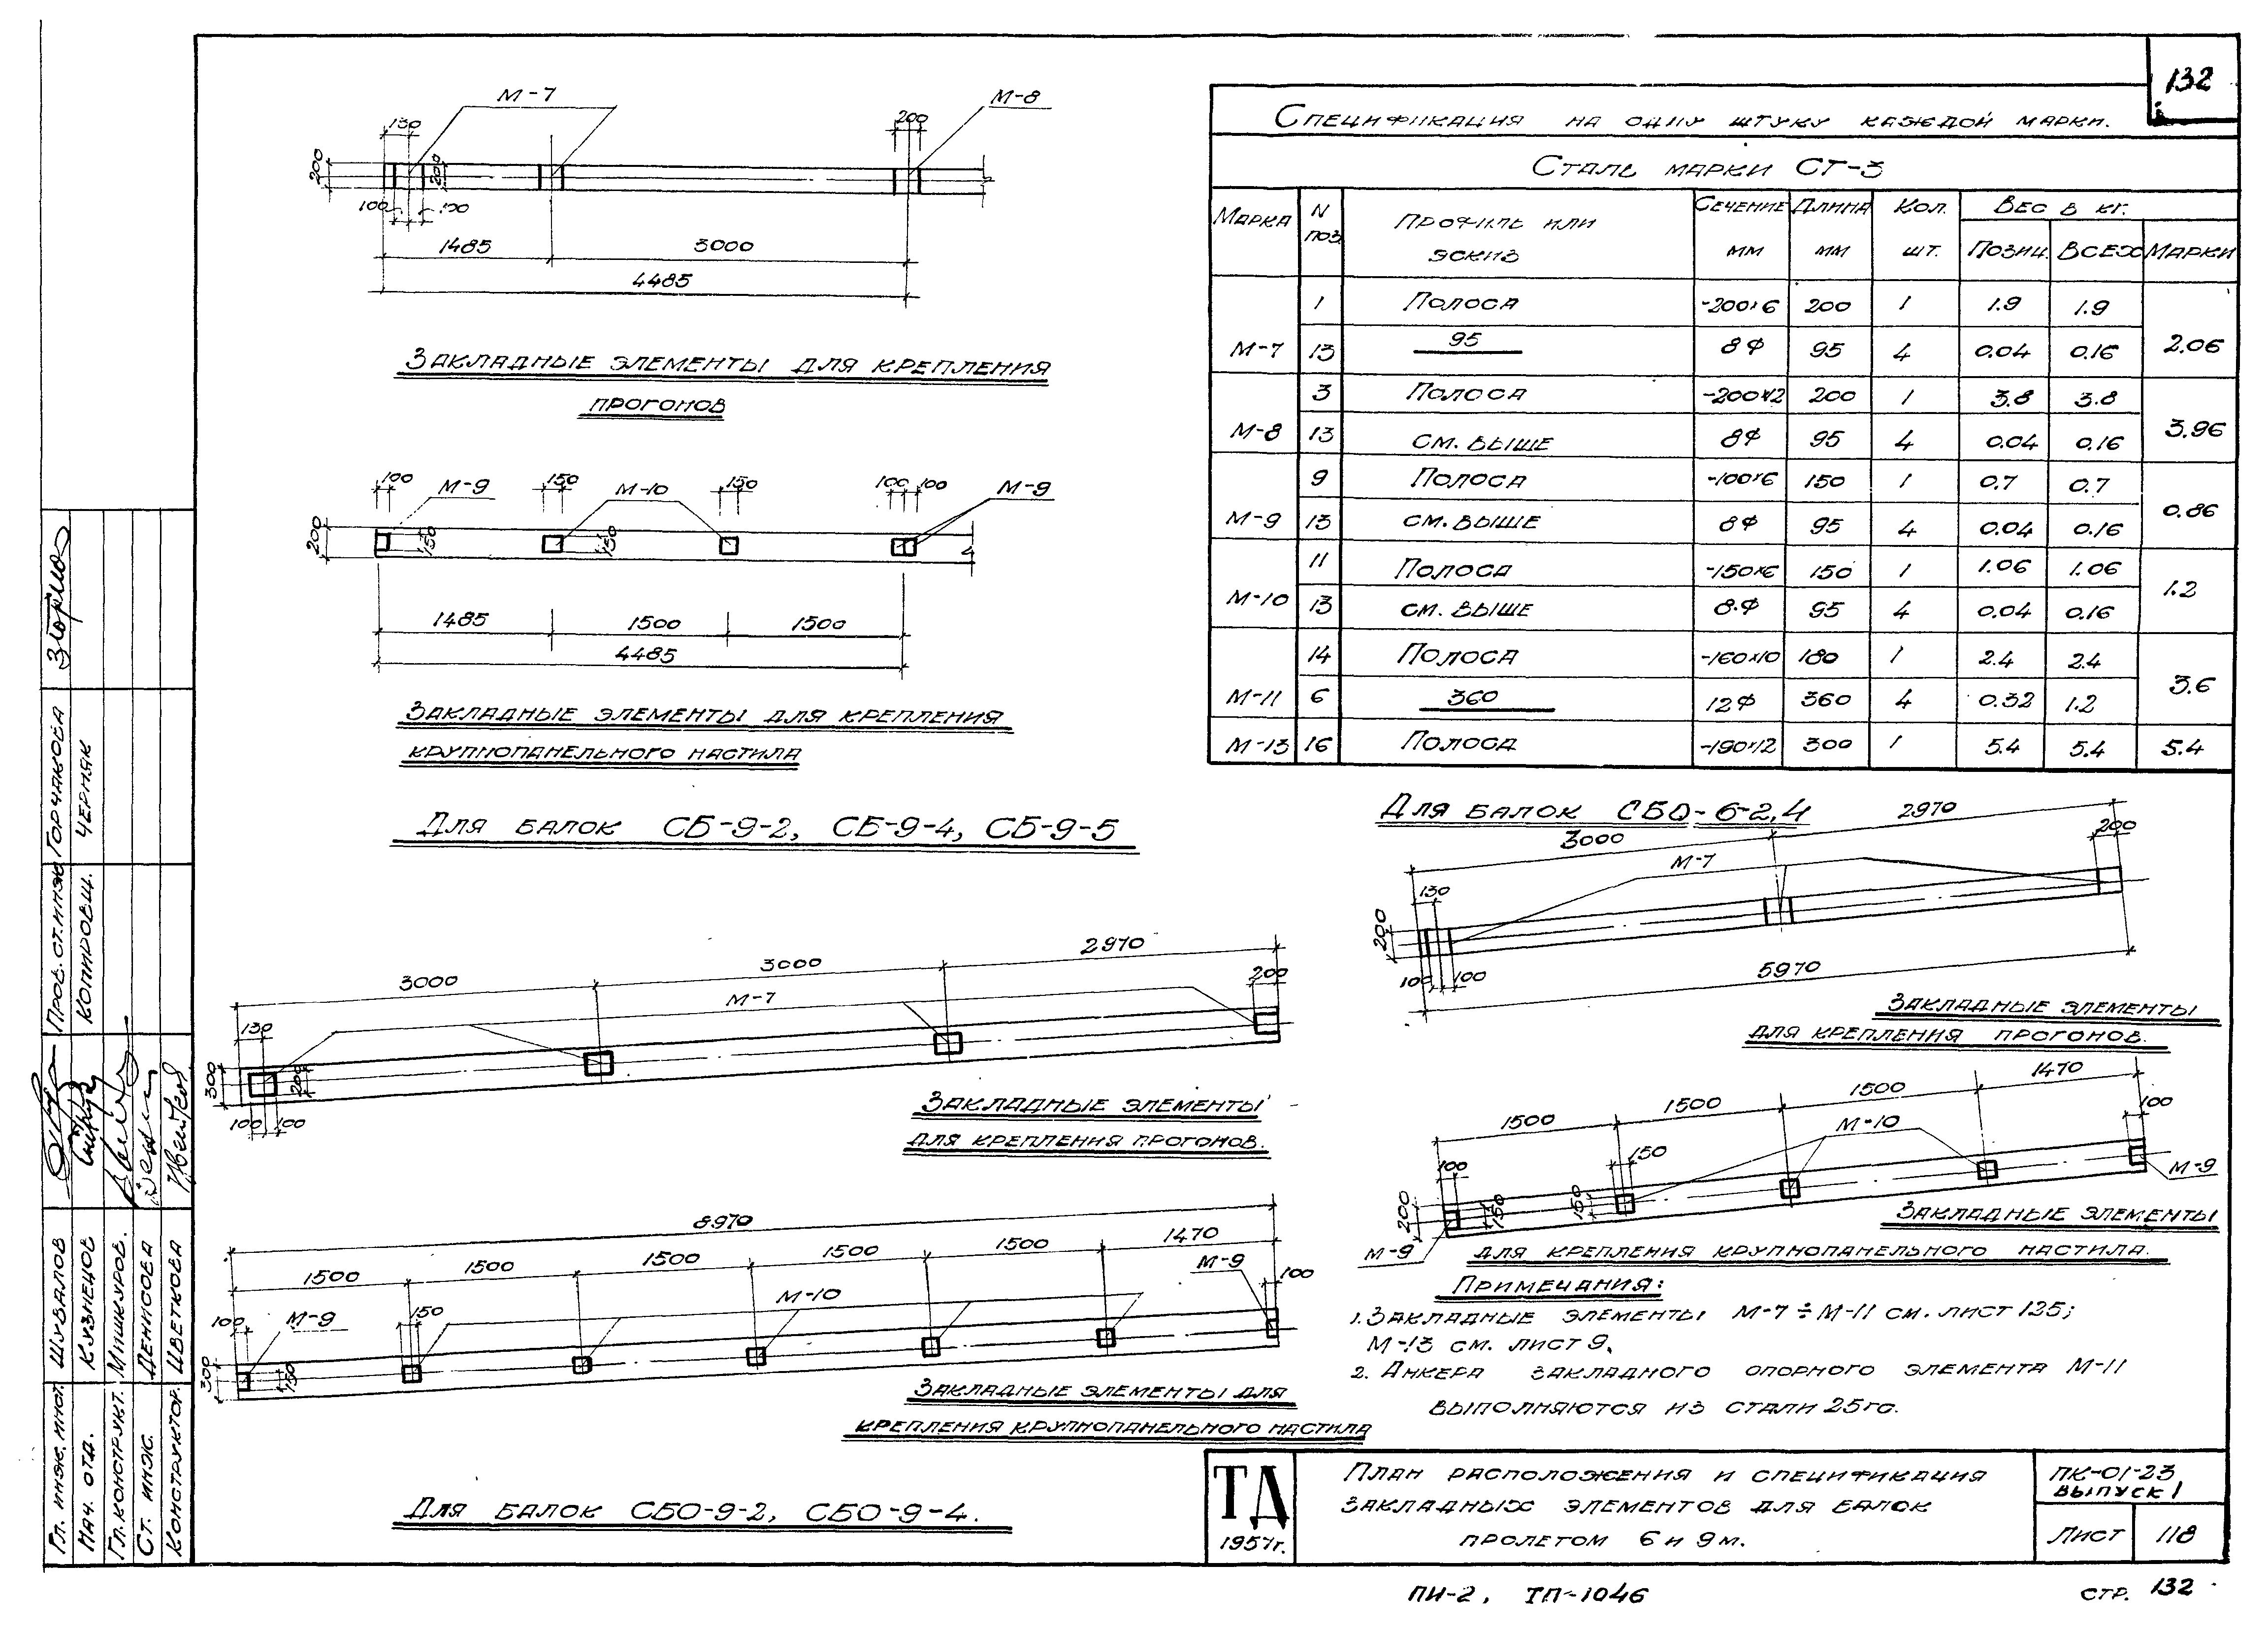 132
М-7
М-8
130
200
200
200
100
100
1485
3000
4485
Закладные элементы для крепления
прогонов
100
М-9
150
М-10
150
100
100
М-9
200
150
150
1485
1500
1500
4485
Закладные элементы для крепления
крупнопанельного настила
Для балок СБ-9-2, СБ-9-4, СБ-9-5
Спецификация на одну штуку каждой марки.
Сталь марки СТ-3
Марка N поз Профиль или эскиз Сечение мм Длина мм Кол. шт. Вес в кг.
Позиц. Всех Марки
1 Полоса -200×6 200 1 1.9 1.9
М-7 13 95 8Ф 95 4 0.04 0.16 2.06
3 Полоса -200×12 200 1 3.8 3.8
М-8 13 см. выше 8Ф 95 4 0.04 0.16 3.96
9 Полоса -100×6 150 1 0.7 0.7
М-9 13 см. выше 8Ф 95 4 0.04 0.16 0.86
11 Полоса -150×6 150 1 1.06 1.06
М-10 13 см. выше 8Ф 95 4 0.04 0.16 1.2
14 Полоса -160×10 180 1 2.4 2.4
М-11 6 360 12Ф 360 4 0.32 1.2 3.6
М-13 16 Полоса -190×12 300 1 5.4 5.4 5.4
Для балок СБО-6-2,4
2970
3000
200
М-7
130
200
100
100
5970
Закладные элементы
для крепления прогонов.
2970
3000
3000
200
М-7
130
300
200
100
100
Закладные элементы
для крепления прогонов.
1470
1500
1500
1500
100
М-10
150
100
М-9
200
150
150
М-9
Закладные элементы
для крепления крупнопанельного настила.
8970
1470
1500
1500
1500
1500
1500
М-9
100
М-10
150
100
М-9
300
150
Закладные элементы для
крепления крупнопанельного настила
Для балок СБО-9-2, СБО-9-4.
Примечания:
1. Закладные элементы М-7 ÷ М-11 см. лист 125;
М-13 см. лист 9.
2. Анкера закладного опорного элемента М-11
выполняются из стали 25гс.
ТД
1957г.
План расположения и спецификация
закладных элементов для балок
пролетом 6 и 9м.
ПК-01-23
выпуск 1
Лист 118
ПИ-2, ТП-1046
стр. 132
Гл. инж. инст. Шувалов
Нач. отд. Кузнецов
Гл. конструкт. Мишкуров.
Ст. инж. Денисова
Конструктор. Цветкова
Пров. ст. инж. Горчакова
Копировщ. Черняк